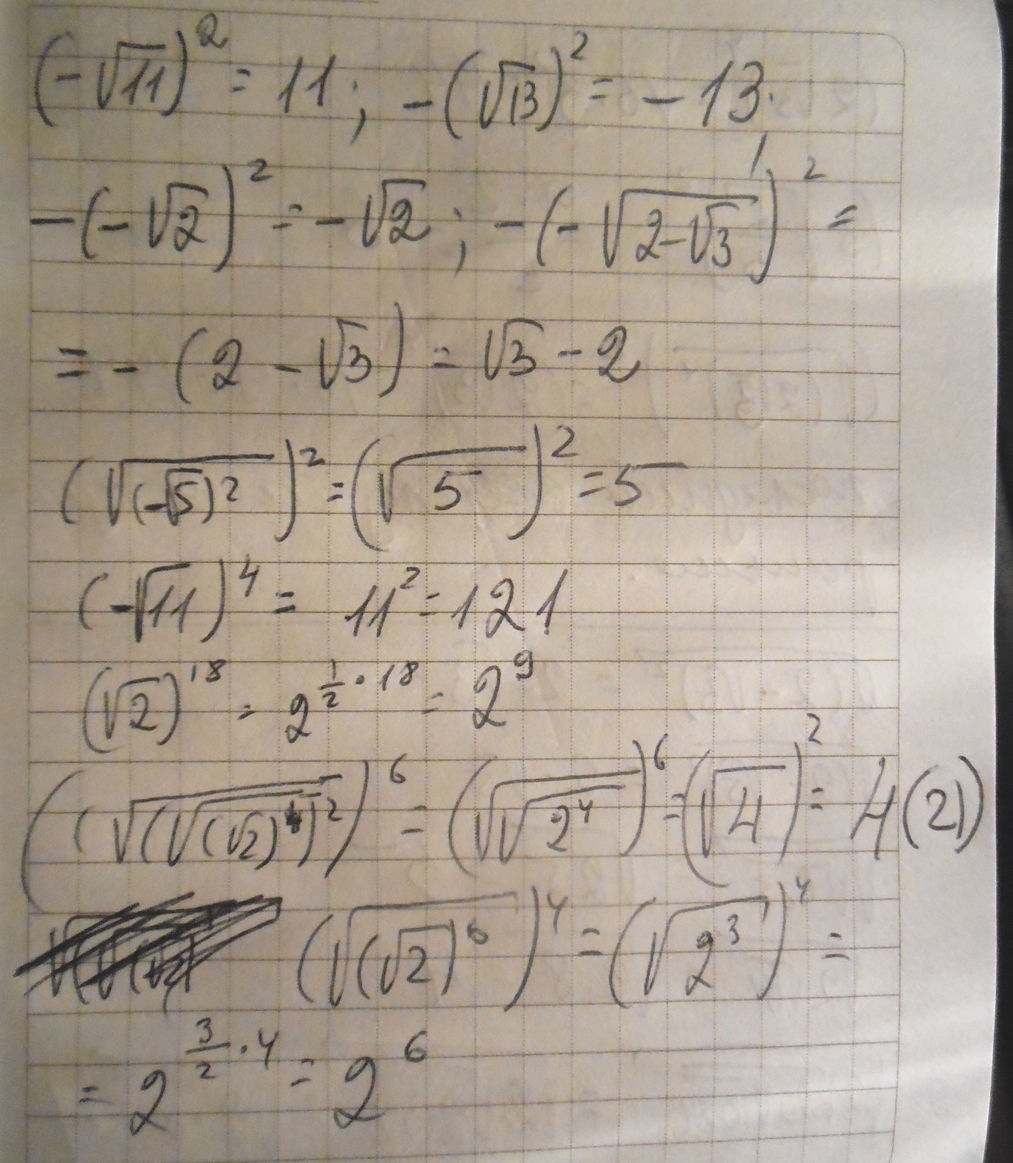 (-√11)² = 11; -(√13)² = -13.
-(-√2)² = -√2; -(-√(2-√3))² =
= -(2 - √3) = √3 - 2
(√((-√5)²))² = (√5)² = 5
(-√11)⁴ = 11² = 121
(√2)¹⁸ = 2^(1/2 · 18) = 2⁹
((√((√((√2)⁴))²)⁶ = (√√(2⁴))⁶ = (√4)² = 4(2)
(√((√2)⁶))⁴ = (√(2³))⁴ =
= 2^(3/2 · 4) = 2⁶